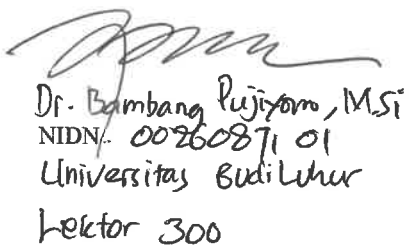 Dr. Bambang Pujiyono, M.Si
NIDN. 0026087101
Universitas Budi Luhur
Lektor 300